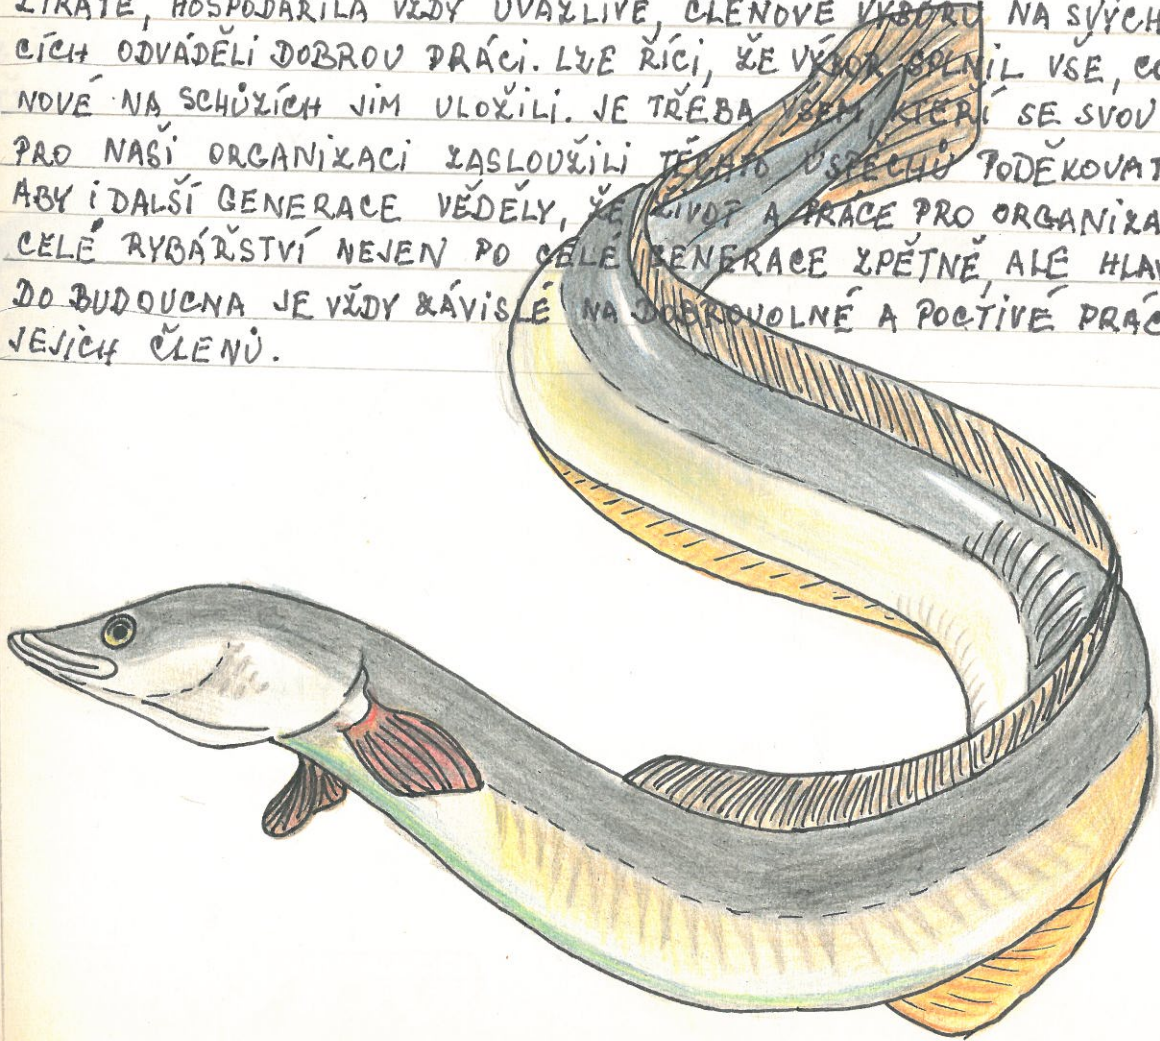 ZÍRATE, HOSPODAŘILA VŽDY UVÁŽLIVĚ, ČLENOVÉ VÝBORU NA SVÝCH
CÍCH ODVÁDĚLI DOBROU PRÁCI. LZE ŘÍCI, ŽE VÝBOR SPLNIL VŠE, CO
NOVÉ NA SCHŮZÍCH JIM ULOŽILI. JE TŘEBA VŠEM, KTEŘÍ SE SVOU
PRO NAŠI ORGANIZACI ZASLOUŽILI TĚCHTO ÚSPĚCHŮ PODĚKOVAT
ABY I DALŠÍ GENERACE VĚDĚLY, ŽE ŽIVOT A PRÁCE PRO ORGANIZA
CELÉ RYBÁŘSTVÍ NEJEN PO CELÉ GENERACE ZPĚTNĚ, ALE HLAV
DO BUDOUCNA JE VŽDY ZÁVISLÉ NA DOBROVOLNÉ A POCTIVÉ PRÁC
JEJICH ČLENŮ.